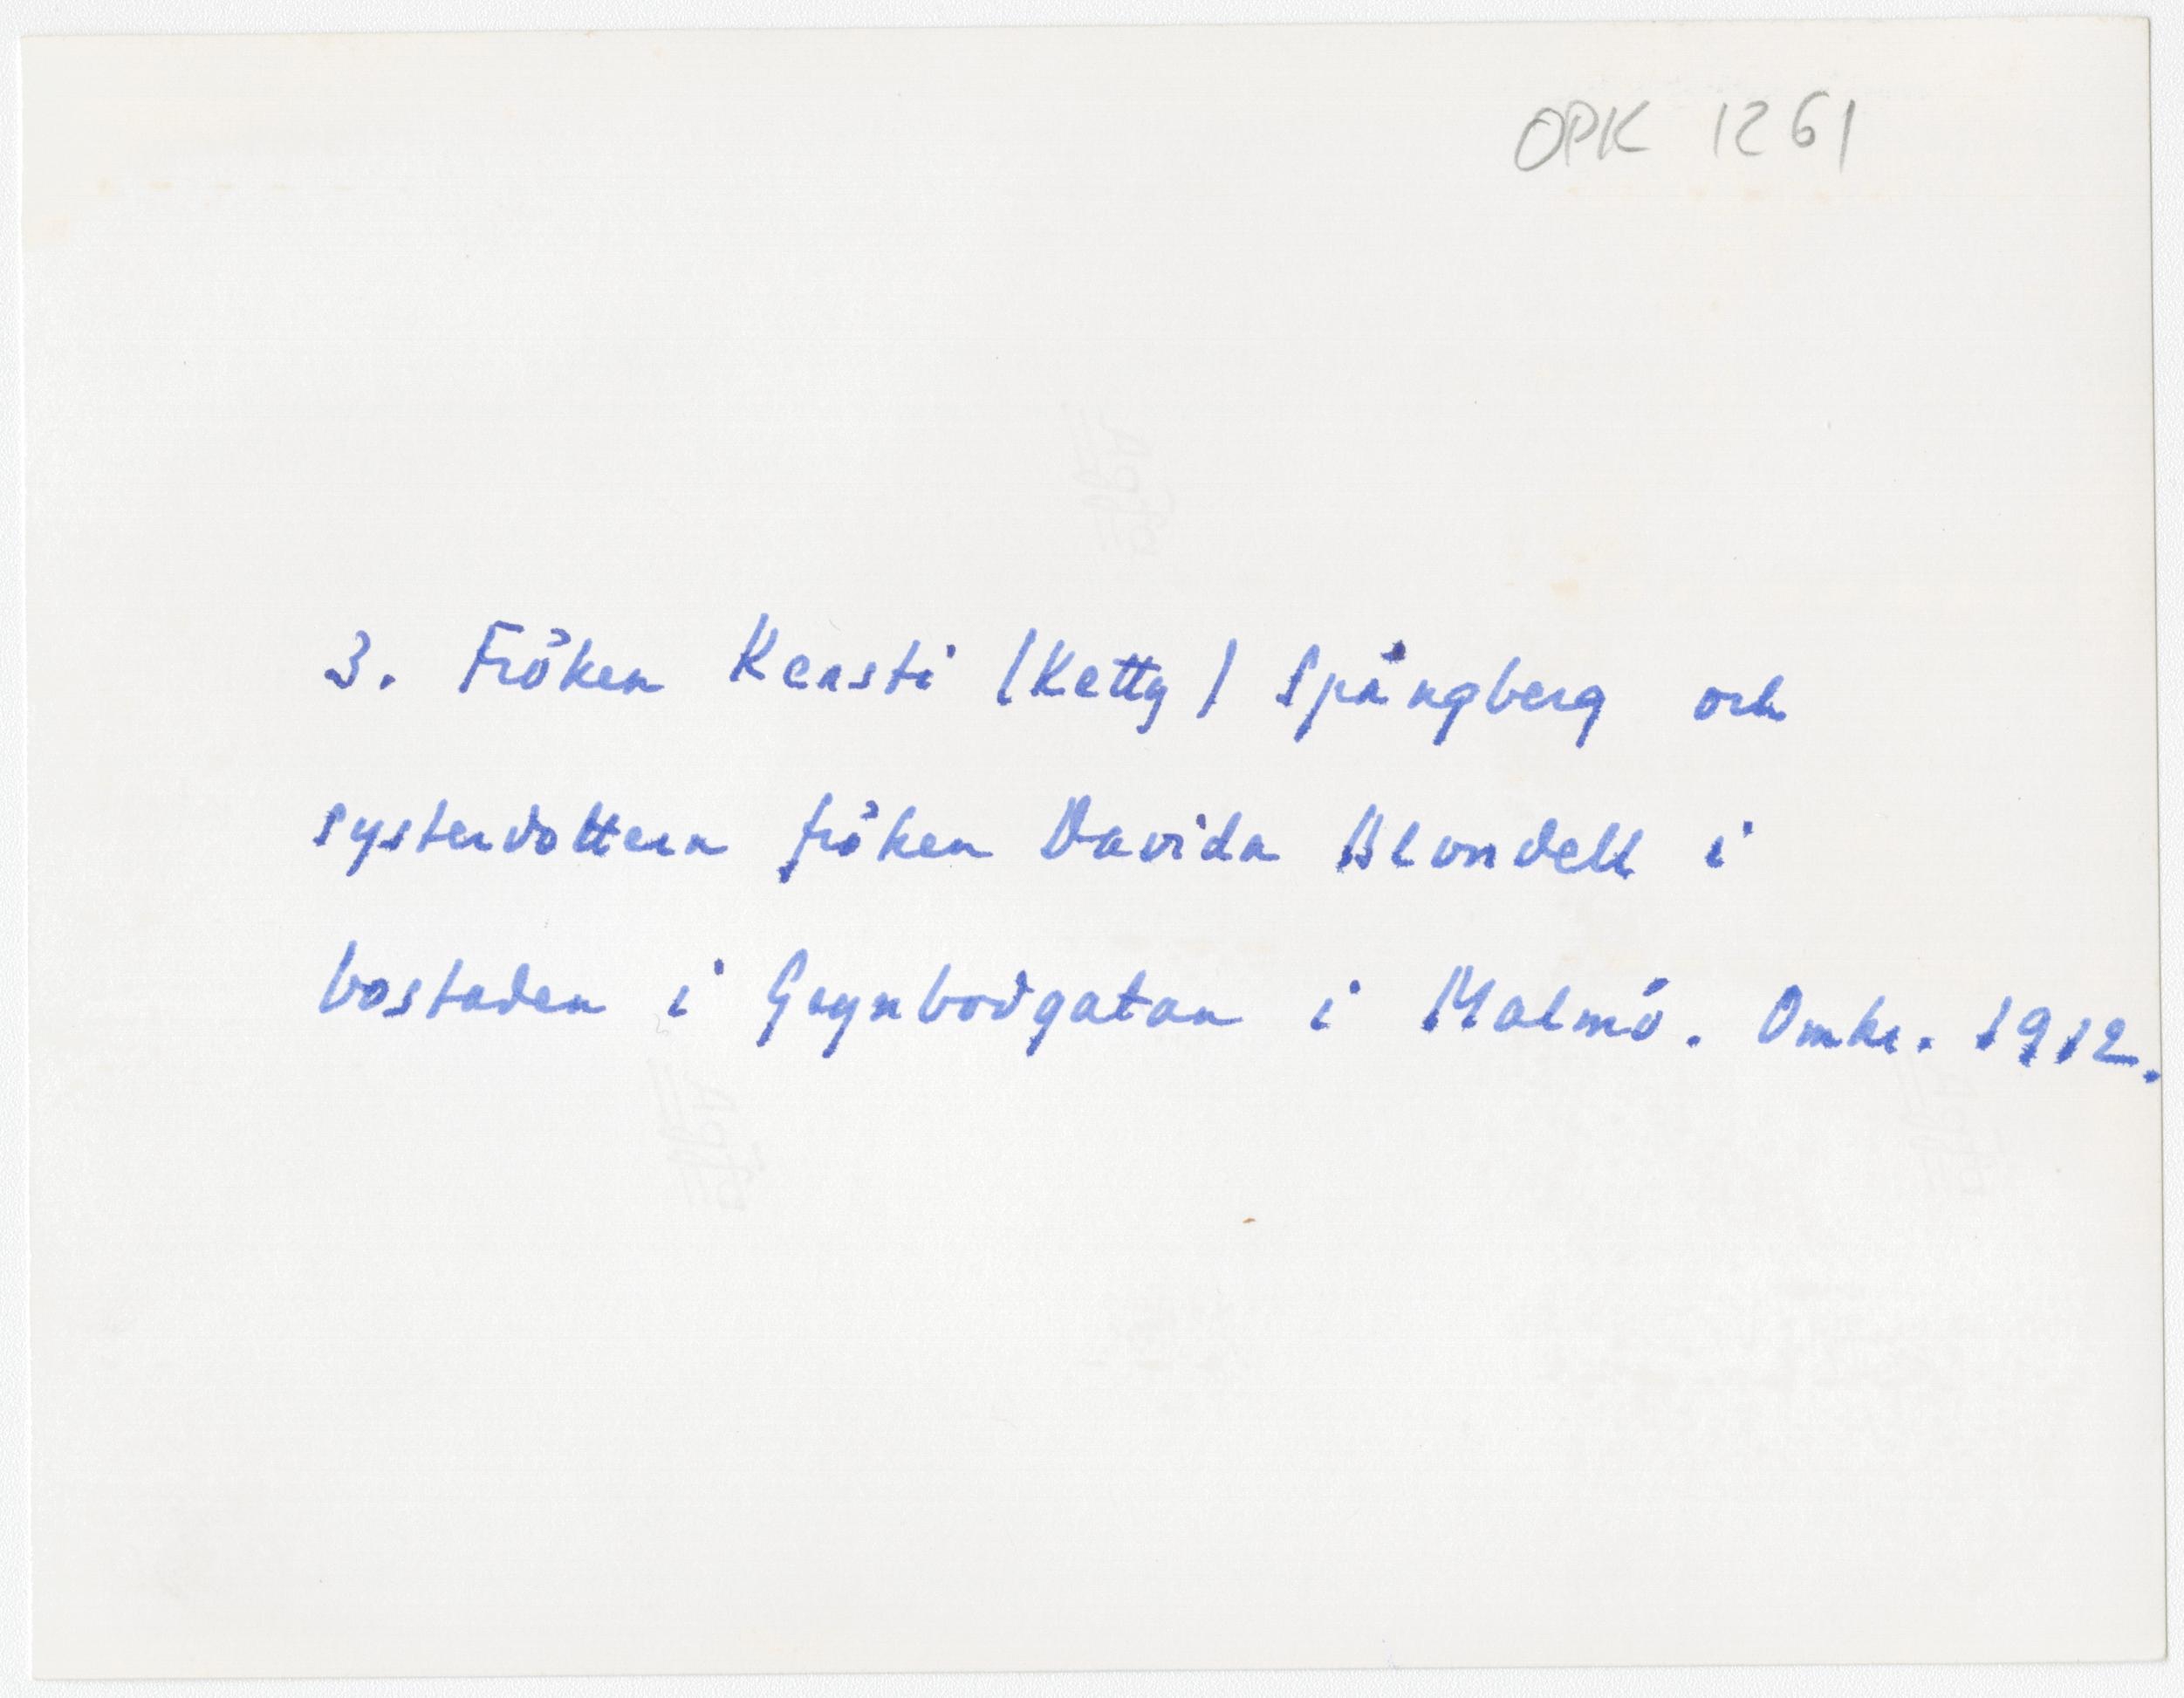 OPK 1261
3. Fröken Kersti (Ketty) Spångberg och
systerdottern fröken Davida Blondell i
bostaden i Grynbodgatan i Malmö. Omkr. 1912.